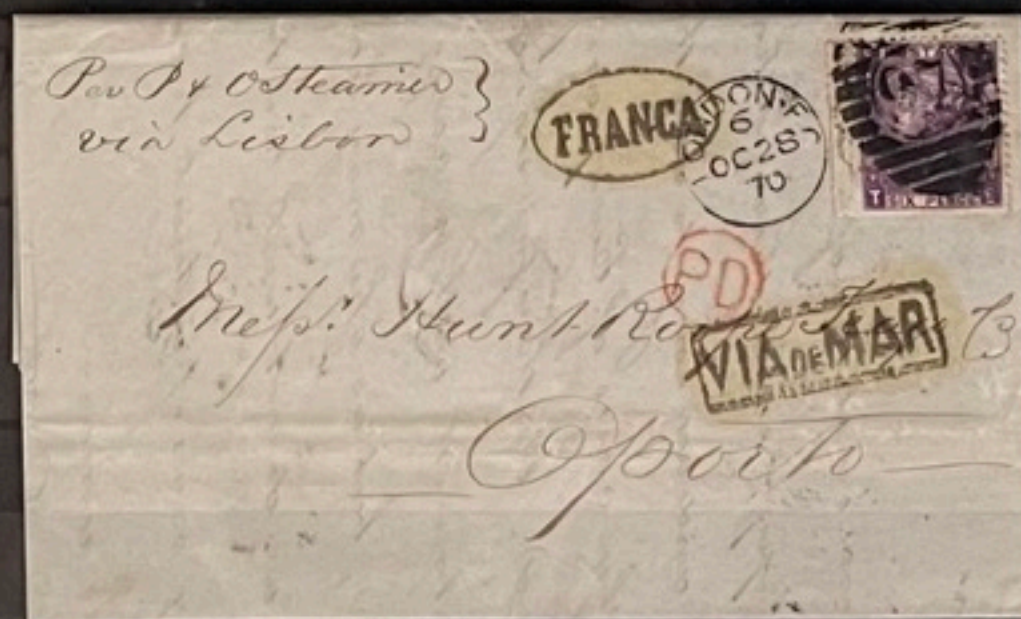 Per P & O Steamer
via Lisbon
FRANCA
LONDON
6
OC28
70
T SIX PENCE
PD
Messrs. Hunt
VIA DE MAR
Oporto